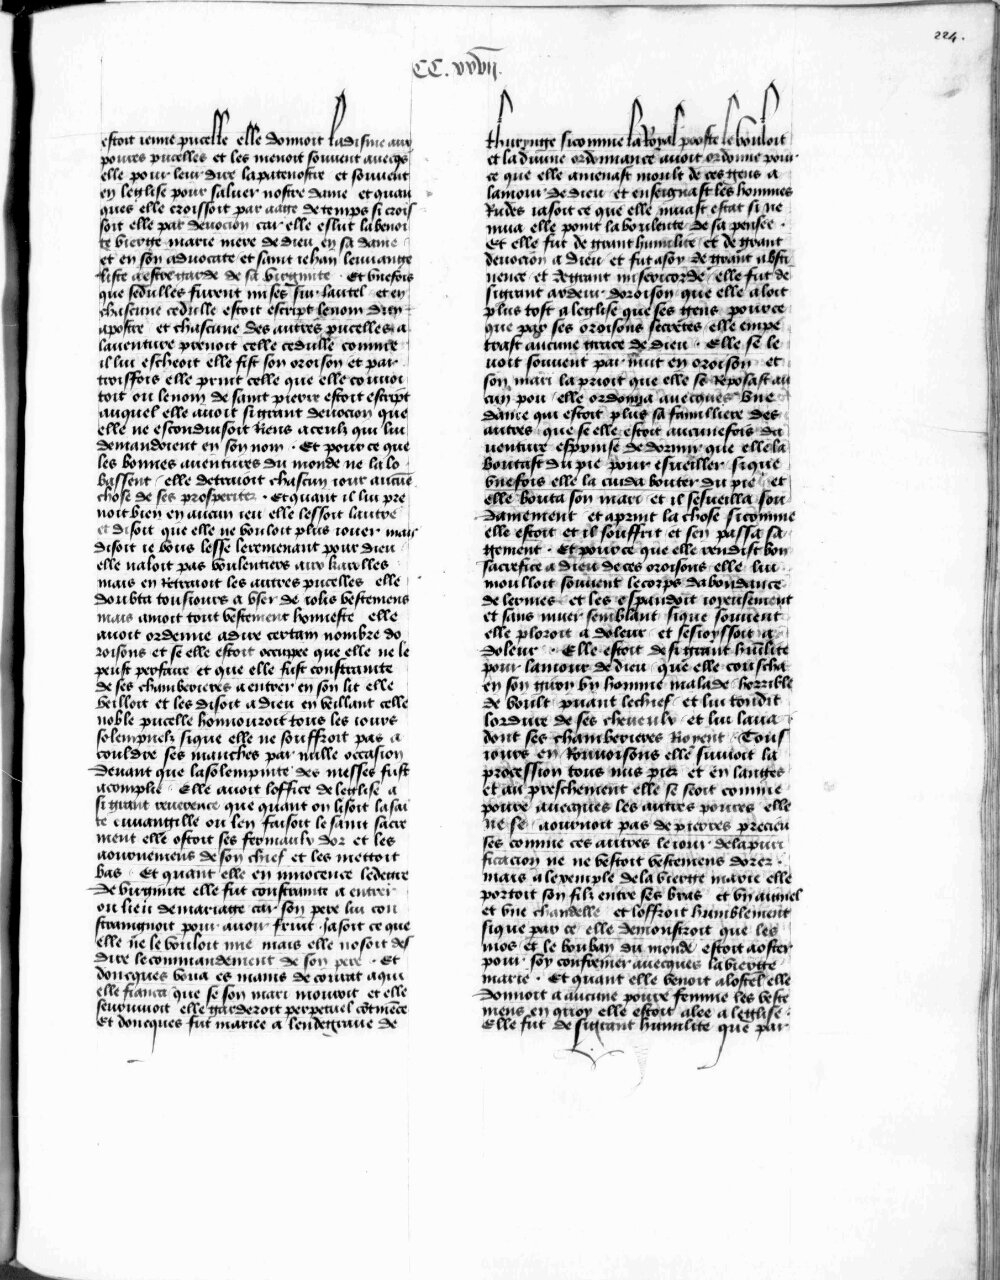 224.
CC. xxvii.
estoit ienne pucelle elle donnoit ladisme aux
poures pucelles et les menoit souuent auecqs
elle pour leur dire la patenostre et souuent
en leglise pour saluer nostre dame et quan
ques elle croissoit par aage de temps si crois
soit elle par deuocion car elle eslut la benoi
te vierge marie mere de dieu en sa dame
et en son aduocate et saint iehan leuuange
liste a estre garde de sa virginite Et vnefois
que sedulles furent mises sur lautel et en
chascune cedulle estoit escript le nom dun
apostre et chascune des autres pucelles a
lauenture prenoit celle cedulle comme
il lui escheoit elle fist son oroison et par
troisfois elle print celle que elle couuoi
toit ou le nom de saint pierre estoit escript
auquel elle auoit si grant deuocion que
elle ne escondiusoit Riens a ceulx qui lui
demandoient en son nom . Et pour ce que
les bonnes auentures du monde ne la lo
bassent elle detraioit chascun iour aucue
chose de ses prosperitez . Et quant il lui pre
noit bien en aucun ieu elle lessoit lautre
et disoit que elle ne vouloit plus iouer mais
disoit ie vous lesse le remenant pour dieu
elle naloit pas voulentiers aux karolles
mais en Retraioit les autres pucelles elle
doubta tousiours a vser de iolis vestemens
mais amoit tout vestement honneste elle
auoit ordenne a dire certain nombre do
roisons et se elle estoit occupee que elle ne le
peust perfaire et que elle fust constrainte
de ses chamberieres a entrer en son lit elle
veilloit et les disoit a dieu en veillant celle
noble pucelle honnouroit tous les iours
solempnelz sique elle ne souffroit pas a
couldre ses manches par nulle occasion
deuant que la solempnite des messes fust
acomplie . Elle auoit loffice de leglise a
si grant reuerence que quant on lisoit la sai
te euuangille ou len faisoit le saint sacre
ment elle ostoit ses fermaulx dor et les
aournemens de son chief et les mettoit
bas . Et quant elle en innocence le degre
de virginite elle fut constrainte a entrer
ou lieu de mariage car son pere lui con
straingnoit pour auoir fruit . Jasoit ce que
elle ne le vouloit mie mais elle nosoit des
dire le commandement de son pere . Et
doncques voua es mains de corrat a qui
elle fiança que se son mari mouroit et elle
seuruiuoit elle garderoit perpetuel cotinece
Et doncques fut mariee a lendegraue de
thuringe sicomme la Royal poeste le vouloit
et la diuine ordonnance auoit ordonne pour
ce que elle amenast moult de ces gens a
lamour de dieu et enseignast les hommes
Rudes iasoit ce que elle muast estat si ne
mua elle point la voulente de sa pensee .
Et elle fut de grant humilite et de grant
deuocion a dieu et fut a soy de grant absti
nence et de grant misericorde elle fut de
si grant ardeur doroison que elle aloit
plus tost a leglise que ses gens pour ce
que par ses oroisons secretes elle empe
trast aucune grace de dieu . Elle se le
uoit souuent par nuit en oroison et
son mari la prioit que elle se Reposast au
cun pou elle ordonna auecques vne
dame qui estoit plus sa familliere des
autres que se elle estoit aucunefois da
uenture esprinse de dormir que elle la
boutast du pie pour esueiller si que
vnefois elle la cuida bouter du pie et
elle bouta son mari et il sesueilla sou
damement et aprint la chose sicomme
elle estoit et il souffrit et sen passa sa
gement . Et pour ce que elle rendist bon
sacrefice a dieu de ces oroisons elle lui
moulloit souuent le corps dabondance
de lermes et les espandoit ioyeusement
et sans muer semblant sique souuent
elle plouroit a doleur et sesioyssoit a
doleur . Elle estoit de si grant humilite
pour lamour de dieu que elle coucha
en son giron vn homme malade horrible
de voult puant le chief et lui tondit
lordure de ses cheueulx et lui laua
dont ses chamberieres Rioyent Tous
iours en Rouuoisons elle suiuoit la
procession tous nus piez et en langes
et au preschement elle se seoit comme
poure auecques les autres poures elle
ne se aournoit pas de pierres precieu
ses comme ces autres le iour de la puri
ficacion ne ne vestoit vestemens dorez .
mais a lexemple de la vierge marie elle
portoit son filz entre ses bras et vn aignel
et vne chandelle et loffroit humblement
sique par ce elle demonstroit que les
mos et le bouban du monde estoit a oster
pour soy confremer auecques la vierge
marie . Et quant elle venoit a lostel elle
donnoit a aucune poure femme les veste
mens en quoy elle estoit alee a leglise .
Elle fut de si grant humilite que par